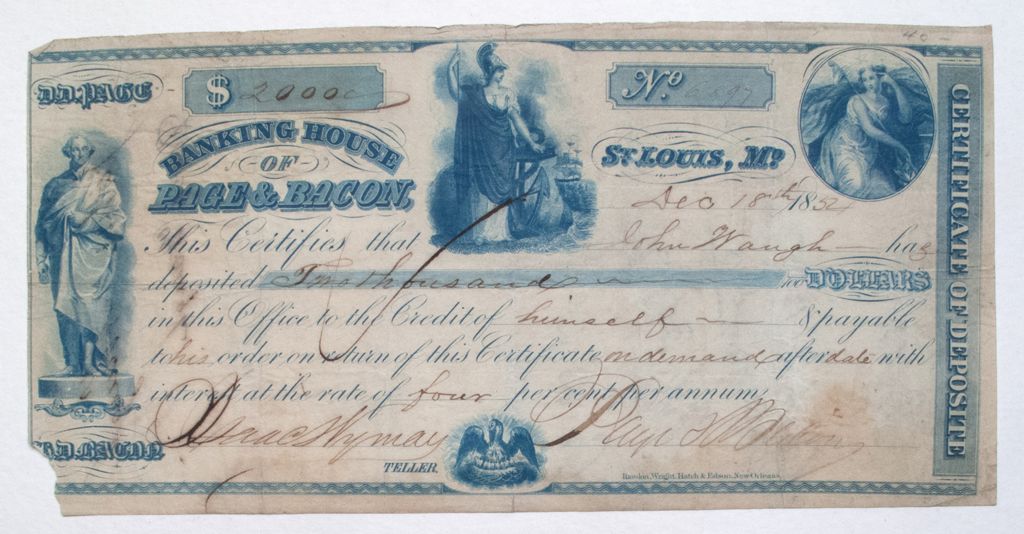 40-
D.D. PAGE
$ 2000
Nº 6897
BANKING HOUSE
OF
PAGE & BACON,
ST LOUIS, MO
Dec 18th 1852
This Certifies that John Waugh has
deposited Two thousand /100 DOLLARS
in this Office to the Credit of himself & payable
to his order on return of this Certificate on demand after date with
interest at the rate of four per cent per annum
Isaac Wyman Page & Bacon
H.D. BACON
TELLER.
Rawdon, Wright, Hatch & Edson, New Orleans.
CERTIFICATE OF DEPOSITE